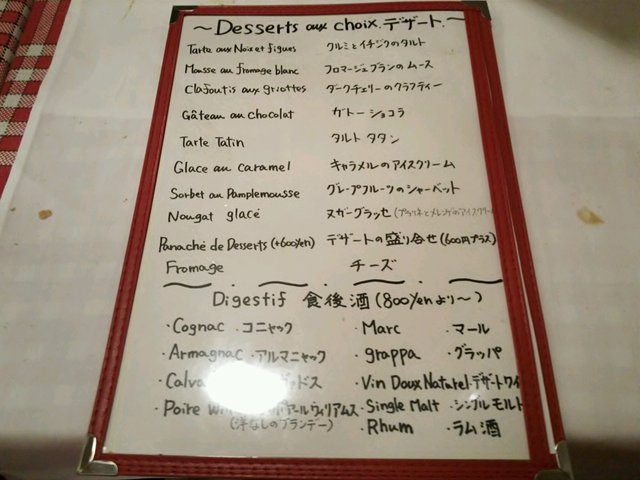 ～Desserts aux choix.デザート.～
Tarte aux Noix et figues クルミとイチジクのタルト
Mousse au fromage blanc フロマージュブランのムース
Clafoutis aux griottes ダークチェリーのクラフティー
Gâteau au chocolat ガトーショコラ
Tarte Tatin タルトタタン
Glace au caramel キャラメルのアイスクリーム
Sorbet au Pamplemousse グレープフルーツのシャーベット
Nougat glacé ヌガーグラッセ(プラリネとメレンゲのアイスクリーム
Panaché de Desserts (+600yen) デザートの盛り合せ(600円プラス)
Fromage チーズ
Digestif 食後酒(800yenより～)
・Cognac ・コニャック ・Marc ・マール
・Armagnac ・アルマニャック ・grappa ・グラッパ
・Calva ドス ・Vin Doux Naturel・デザートワイ
・Poire アールウィリアムス ・Single Malt ・シングルモルト
(洋なしのブランデー) ・Rhum ・ラム酒